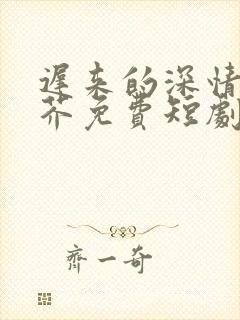 遲来的深情
芥免費短劇
齊一奇